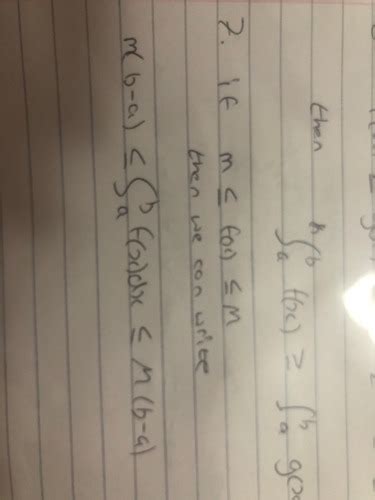 then ∫ₐᵇ f(x) ≥ ∫ₐᵇ
2. if m ≤ f(x) ≤ M
then we can write
m(b-a) ≤ ∫ₐᵇ f(x)dx ≤ M(b-a)